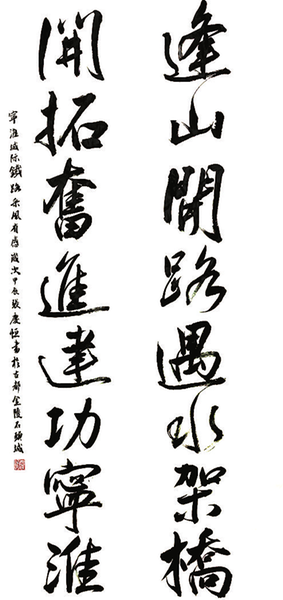 逢山開路遇水架橋
開拓奮進達功寧淮
寧淮城际鐵路采風有感歲次甲辰張慶恒書於古都金陵石頭城